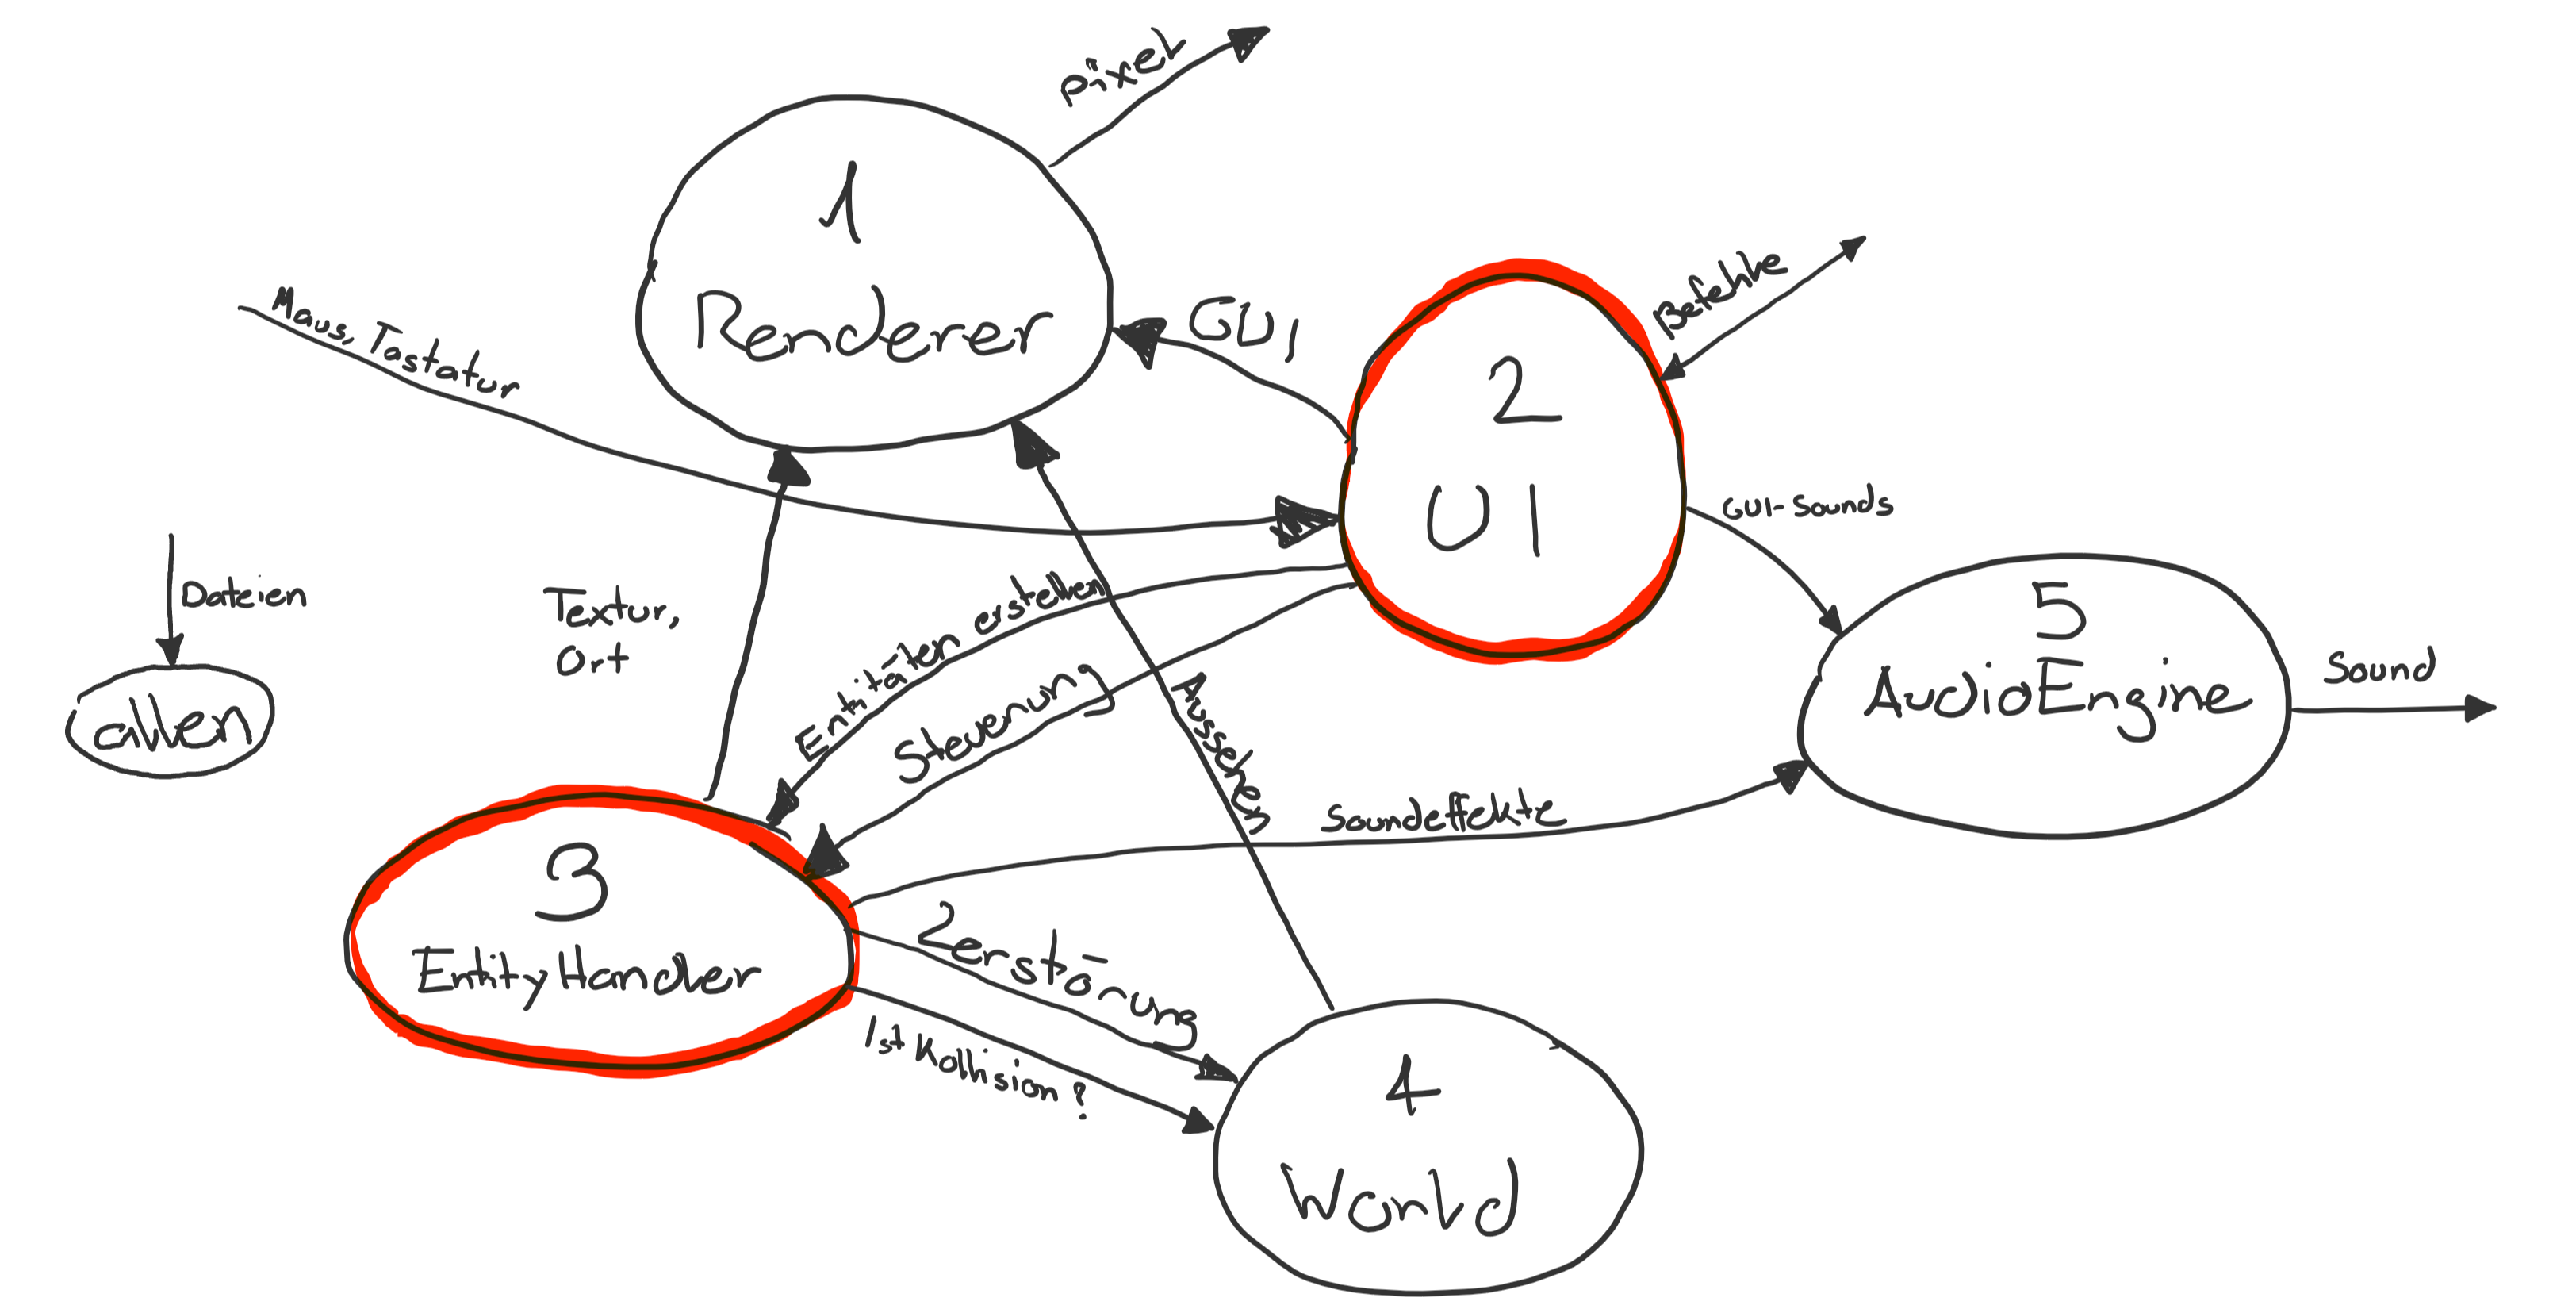 Pixel
1
Renderer
Maus, Tastatur
GUI
Befehle
2
UI
GUI-Sounds
Dateien
allen
Textur,
Ort
Entitäten erstellen
Steuerung
Aussehen
5
AudioEngine
Sound
Soundeffekte
3
EntityHandler
Zerstörung
Ist Kollision?
4
World